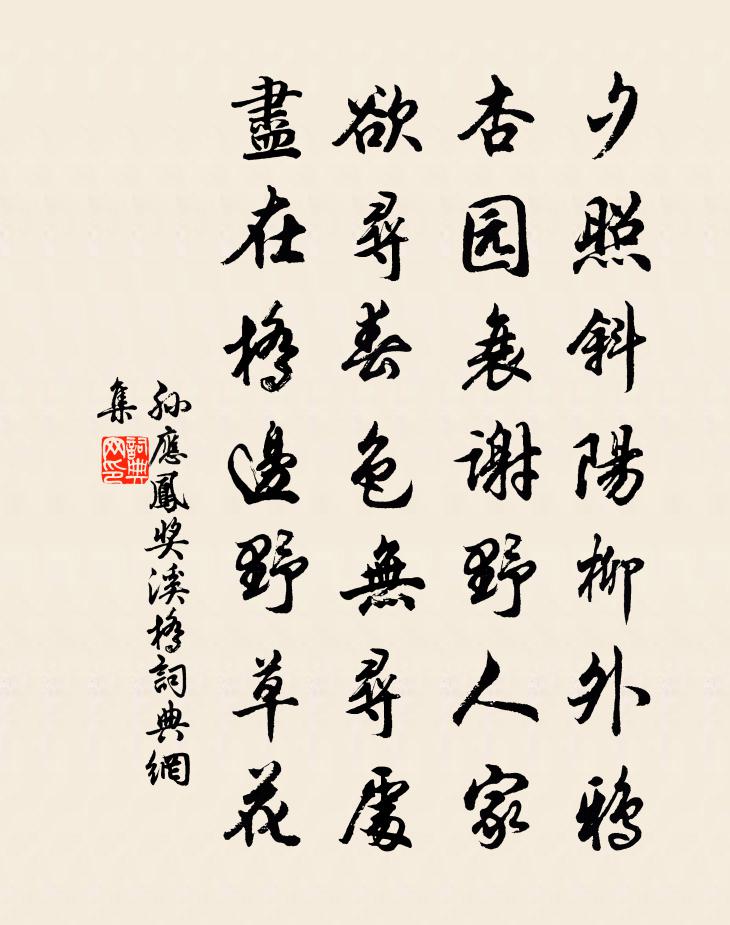 夕照斜陽柳外鴉
杏园衰謝野人家
欲尋春色無尋處
盡在橋邊野草花
孙應鳳奖溪橋詞典網
集
詞典網印